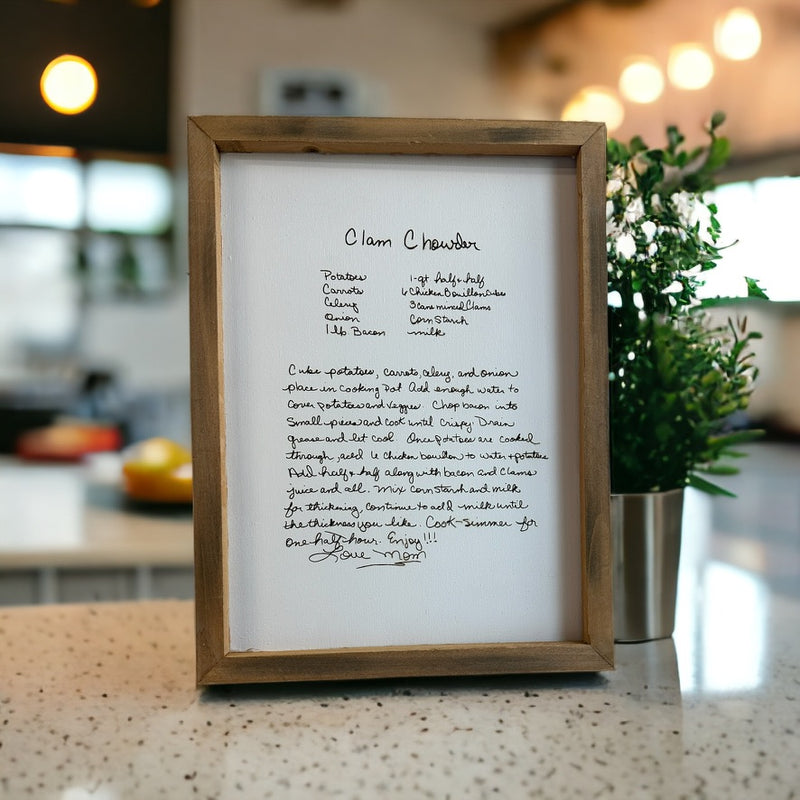 Clam Chowder
Potatoes 1-qt half & half
Carrots 6 Chicken Bouillon Cubes
Celery 3 cans minced Clams
Onion Corn Starch
1 lb Bacon milk
Cube potatoes, carrots, celery, and onion
place in cooking pot. Add enough water to
cover potatoes and veggies. Chop bacon into
small pieces and cook until crispy. Drain
grease and let cool. Once potatoes are cooked
through, add 6 chicken bouillon to water & potatoes
Add half & half along with bacon and clams
juice and all. Mix corn starch and milk
for thickening, continue to add milk until
the thickness you like. Cook-simmer for
one half-hour. Enjoy!!!
Love Mom